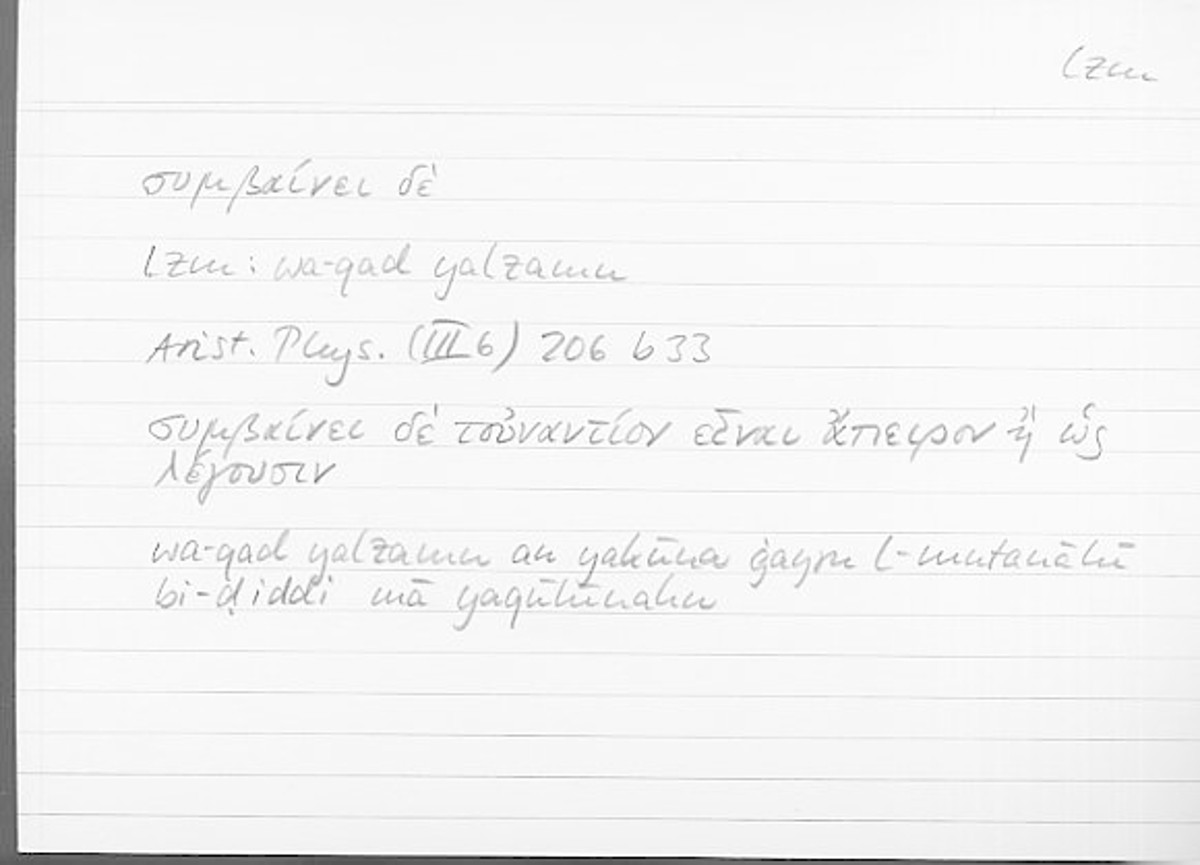 lzm
συμβαίνει δὲ
lzm: wa-qad yalzamu
Arist. Phys. (III 6) 206 b 33
συμβαίνει δὲ τοὐναντίον εἶναι ἄπειρον ἢ ὡς
λέγουσιν
wa-qad yalzamu an yakūna ġayru l-mutanāhī
bi-ḍiddi mā yaqūlūnahu